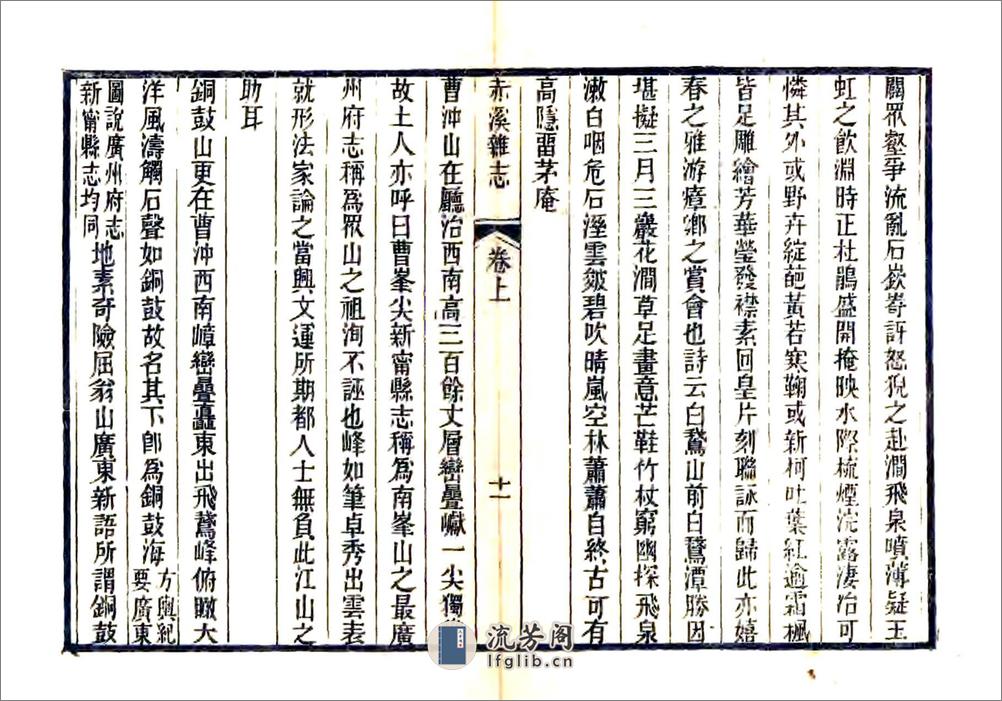 關眾壑爭流亂石嶔嵜訝怒猊之赴澗飛泉噴薄疑玉
虹之飲淵時正杜鵑盛開掩映水際梳煙浣露淒冶可
憐其外或野卉綻葩黃若寒鞠或新柯吐葉紅逾霜楓
皆足雕繪芳華瑩發襟素回皇片刻聯詠而歸此亦嬉
春之雅游瘴鄉之賞會也詩云白鵞山前白鵞潭勝因
堪擬三月三巖花澗草足畫意芒鞋竹杖窮幽探飛泉
漱白咽危石溼雲皴碧吹晴嵐空林蕭蕭自終古可有
高隱畱茅庵
赤溪雜志
卷上
十一
曹沖山在廳治西南高三百餘丈層巒疊巘一尖獨
故土人亦呼曰曹峯尖新甯縣志稱爲南峯山之最廣
州府志稱爲眾山之祖洵不誣也峰如筆卓秀出雲表
就形法家論之當興文運所期都人士無負此江山之
助耳
銅鼓山更在曹沖西南嶂巒疊矗東出飛鵞峰俯瞰大
洋風濤觸石聲如銅鼓故名其下卽爲銅鼓海方輿紀
要廣東
圖說廣州府志
新甯縣志均同地素奇險屈翁山廣東新語所謂銅鼓
流芳阁
lfglib.cn